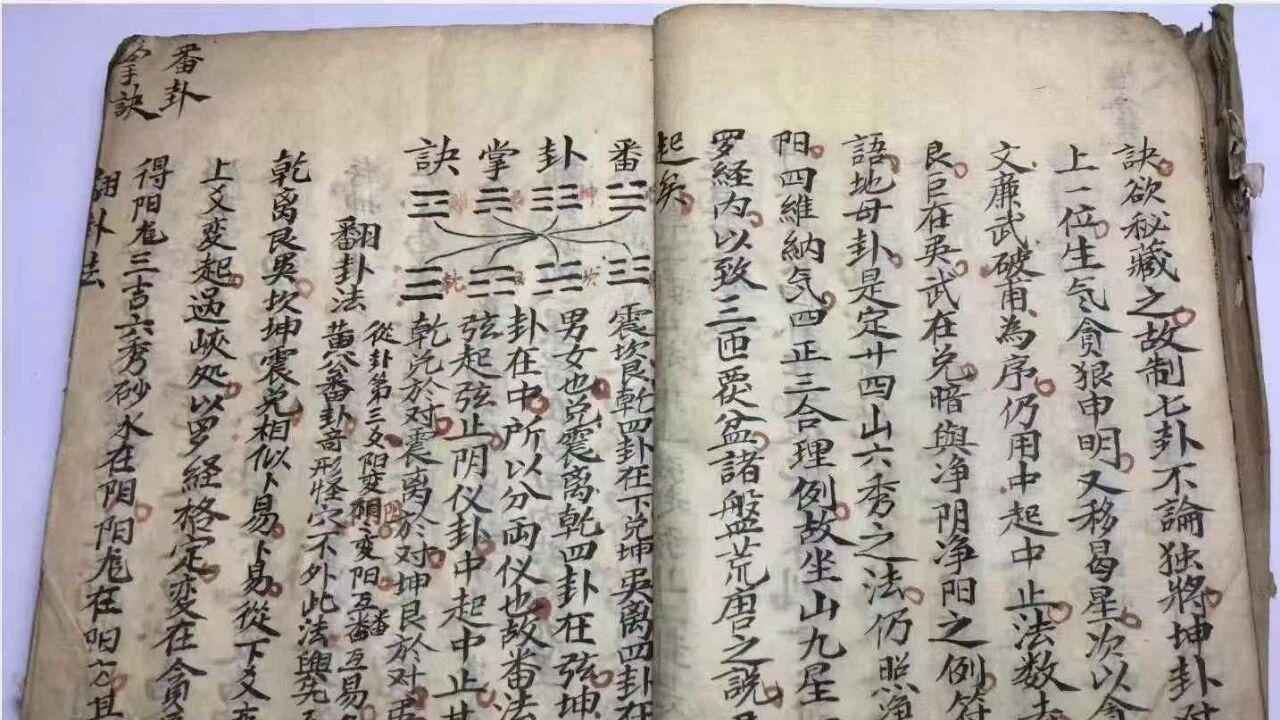 訣欲秘藏之故制七卦不論独將坤卦
上一位生气貪狼申明又移曷星次以貪
文廉武破甫為序仍用中起中止法数去
艮巨在巽武在兑暗與净阴净阳之例符
語地母卦是定廿四山六秀之法仍照净
阳四維納气四正三合理例故坐山九星
罗经内以致三
盆諸盤荒唐之説
起矣
番卦掌訣
震坎艮乾四卦在下兑坤巽离四卦
男女也兑震离乾四卦在弦坤
卦在中所以分両仪也故番法
弦起弦止阴仪卦中起中止
乾兑於对震离於对坤艮於对
翻卦法
從卦第三爻阳变阴
变阳互番互易
黄公番卦奇形怪穴不外此法與先
乾离艮巽坎坤震兑相似卜易卜易從下爻
上爻变起過峡处以罗経格定变在貪
得阳龙三吉六秀砂水在阴阳龙在
翻卦法
番卦
掌訣